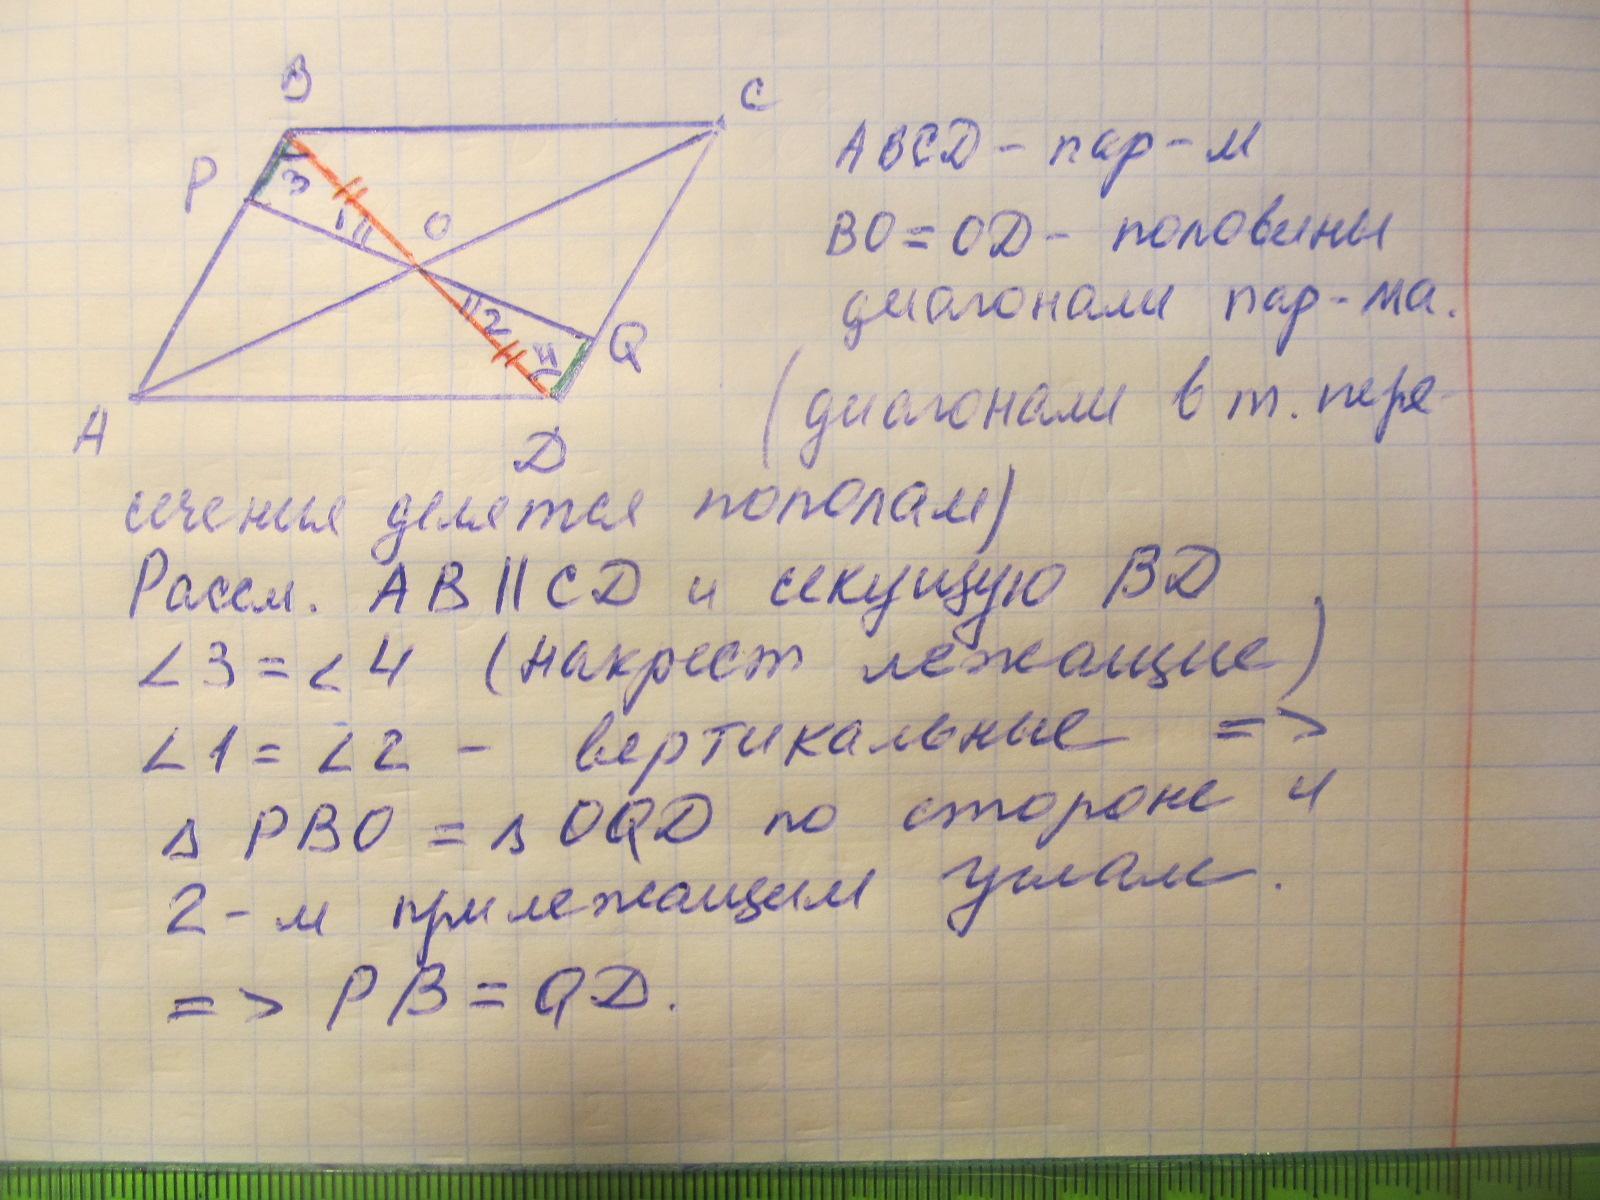 B
C
P
3
1
O
2
4
Q
A
D
ABCD - пар-м
BO = OD - половины
диагонали пар-ма.
(диагонали в т. пере-
сечения делятся пополам)
Рассм. AB || CD и секущую BD
∠3 = ∠4 (накрест лежащие)
∠1 = ∠2 - вертикальные =>
Δ PBO = Δ OQD по стороне и
2-м прилежащим углам.
=> PB = QD.